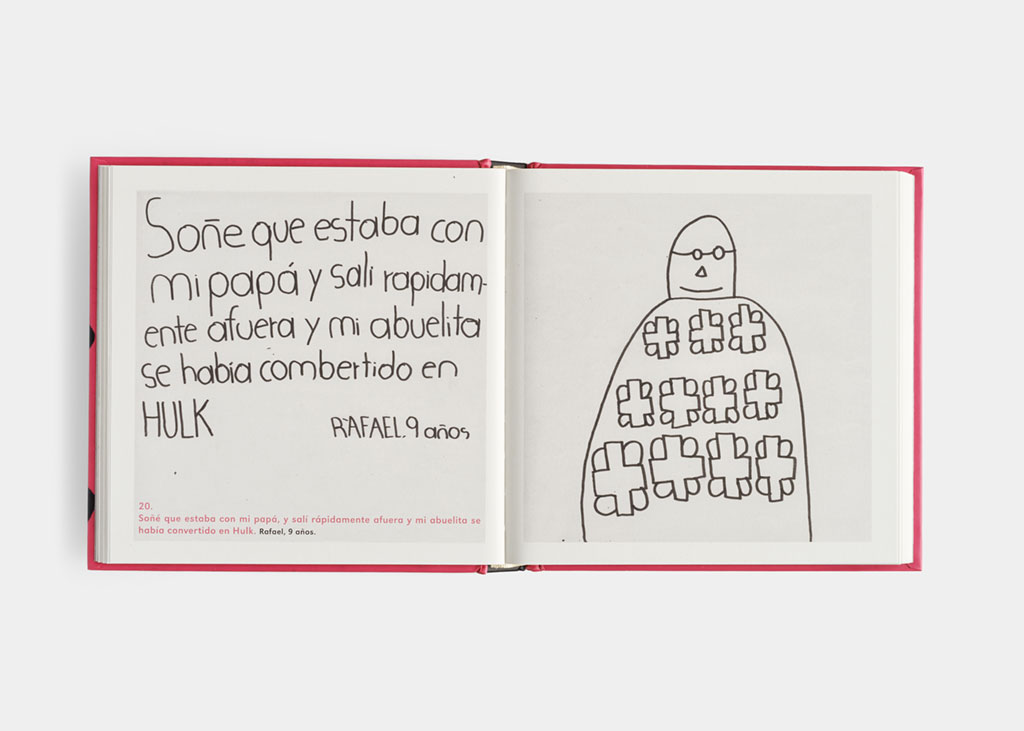 Soñe que estaba con
mi papá y salí rapidam-
ente afuera y mi abuelita
se había combertido en
HULK
RAFAEL. 9 años
20.
Soñé que estaba con mi papá, y salí rápidamente afuera y mi abuelita se
había convertido en Hulk. Rafael, 9 años.